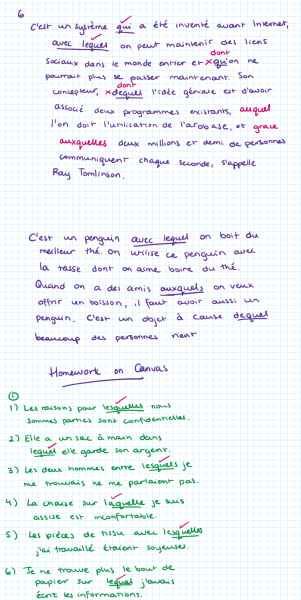 6
C'est un système qui a été inventé avant Internet,
avec lequel on peut maintenir des liens
dont
sociaux dans le monde entier et xqu'on ne
pourrait plus se passer maintenant. Son
dont
concepteur, xdequel l'idée géniale est d'avoir
associé deux programmes existants, auquel
l'on doit l'utilisation de l'arobase, et grace
auxquelles deux millions et demi de personnes
communiquent chaque seconde, s'appelle
Ray Tomlinson.
C'est un penguin avec lequel on boit du
meilleur thé. On utilise ce penguin avec
la tasse dont on aime boire du thé.
Quand on a des amis auxquels on veux
offrir un boisson, il faut avoir aussi un
penguin. C'est un objet à cause dequel
beaucoup des personnes rient
Homework on Canvas
1
1) Les raisons pour lesquelles nous
sommes partis sont confidentielles.
2) Elle a un sac à main dans
lequel elle garde son argent.
3) Les deux hommes entre lesquels je
me trouvais ne me parlaient pas.
4) La chaise sur laquelle je suis
assise est inconfortable.
5) Les pièces de tissu avec lesquelles
j'ai travaillé étaient soyeuses.
6) Je ne trouve plus le bout de
papier sur lequel j'avais
écrit les informations.